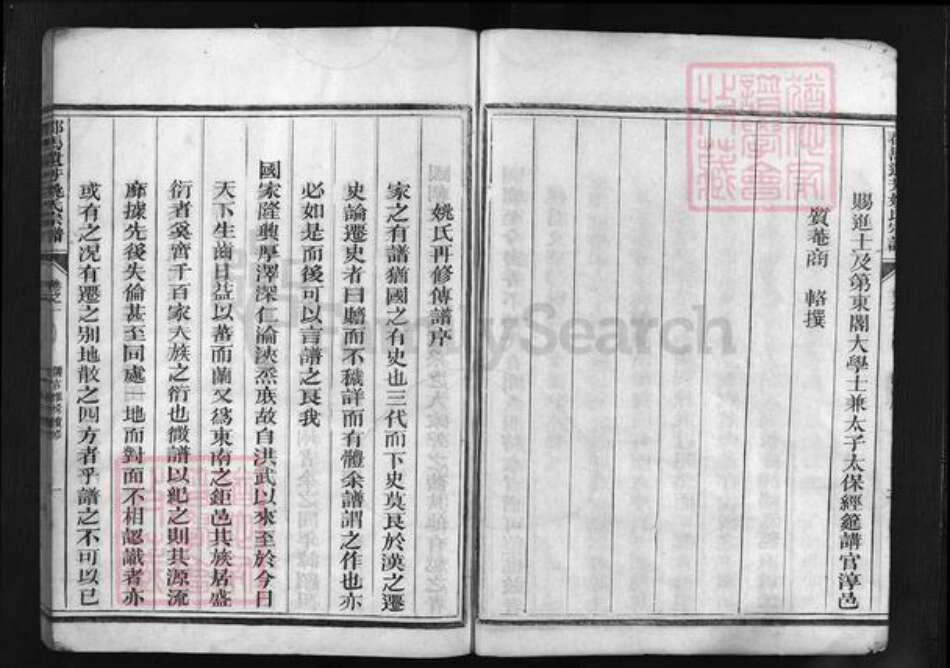 賜進士及第東閣大學士兼太子太保經筵講官淳邑
質菴商　輅撰
姚氏再修傳譜序
家之有譜猶國之有史也三代而下史莫良於漢之遷
史論遷史者曰贍而不穢詳而有體余譜謂之作也亦
必如是而後可以言譜之良我
國家隆興厚澤深仁淪浹烝庶故自洪武以來至於今日
天下生齒日益以蕃而蘭又為東南之鉅邑其族居盛
衍者奚啻千百家大族之衍也微譜以紀之則其源流
靡據先後失倫甚至同處一地而對面不相認識者亦
或有之况有遷之别地散之四方者乎譜之不可以已
姚氏宗譜
卷之一
譜學會
收藏
FamilySearch